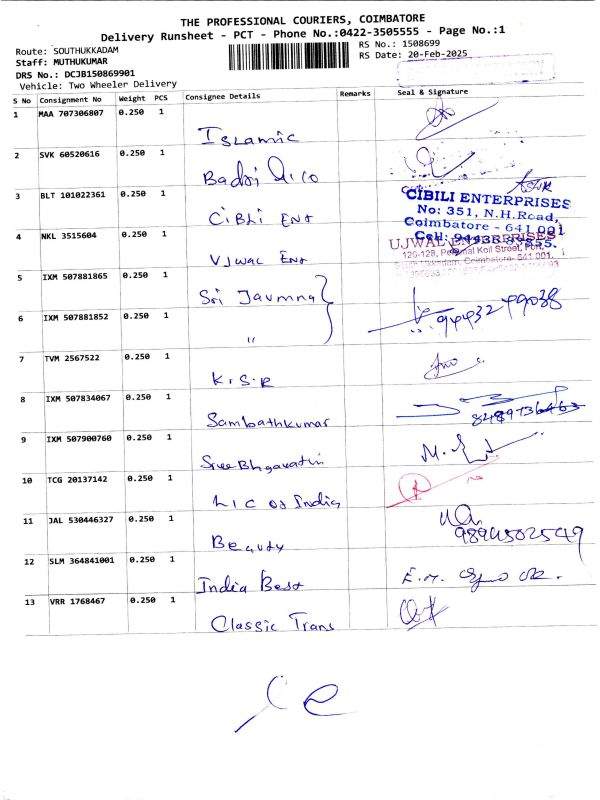 THE PROFESSIONAL COURIERS, COIMBATORE
Delivery Runsheet - PCT - Phone No.:0422-3505555 - Page No.:1
Route: SOUTHUKKADAM
RS No.: 1508699
Staff: MUTHUKUMAR
RS Date: 20-Feb-2025
DRS No.: DCJB150869901
Vehicle: Two Wheeler Delivery
S No Consignment No Weight PCS Consignee Details Remarks Seal & Signature
1 MAA 707306807 0.250 1 Islamic
2 SVK 60520616 0.250 1 Badri
3 BLT 101022361 0.250 1 CiBLi Ent
CIBILI ENTERPRISES
No: 351, N.H.Road,
Coimbatore - 641 001
4 NKL 3515604 0.250 1 Vjwal Ent
UJWAL ENTERPRISES
5 IXM 507881865 0.250 1 Sri Jaumna
6 IXM 507881852 0.250 1 "
94432 49038
7 TVM 2567522 0.250 1 K.S.R
8 IXM 507834067 0.250 1 Sambathkumar
9 IXM 507900760 0.250 1 Sree Bhgavathi
10 TCG 20137142 0.250 1 LIC of India
11 JAL 530446327 0.250 1 Beauty
12 SLM 364841001 0.250 1 India Best
13 VRR 1768467 0.250 1 Classic Trans